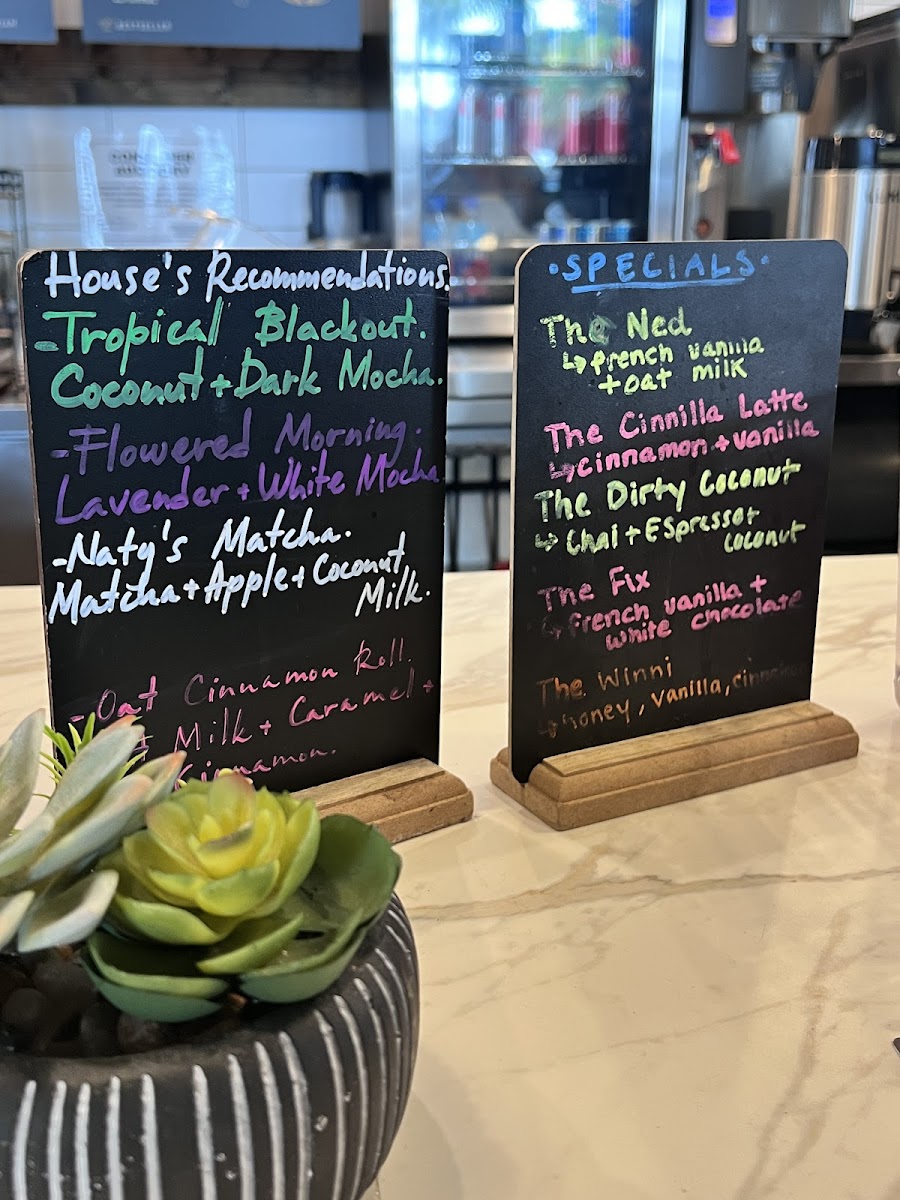 BESTSELLER
House's Recommendations.
-Tropical Blackout.
Coconut + Dark Mocha.
-Flowered Morning.
Lavender + White Mocha
-Naty's Matcha.
Matcha + Apple + Coconut
Milk.
-Oat Cinnamon Roll.
Milk + Caramel +
Cinnamon.
·SPECIALS·
The Ned
↳ french vanilla
+ oat milk
The Cinnilla Latte
↳ cinnamon + vanilla
The Dirty Coconut
↳ Chai + Espresso +
coconut
The Fix
↳ french vanilla +
white chocolate
The Winni
↳ honey, vanilla,